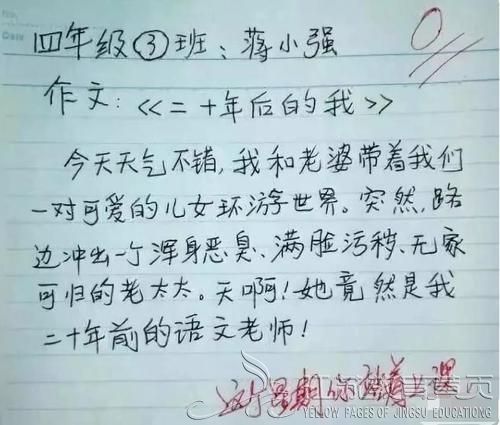 四年级③班：蒋小强
0
作文：《二十年后的我》
今天天气不错，我和老婆带着我们
一对可爱的儿女环游世界。突然，路
边冲出一个浑身恶臭、满脸污秽、无家
可归的老太太。天啊！她竟然是我
二十年前的语文老师！
这个星期你站着上课
YELLOW PAGES OF JINGSU EDUCATIONG